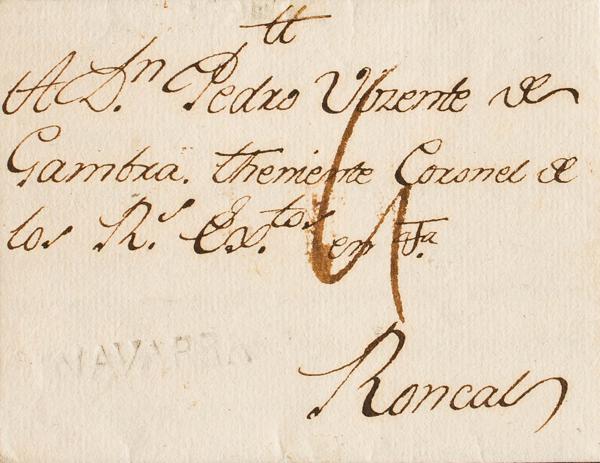 tt
A D.n Pedro Vizente de
Gambra. theniente Coronel de
los R.s Ex.tos en Ja.
Roncal
NAVARRA